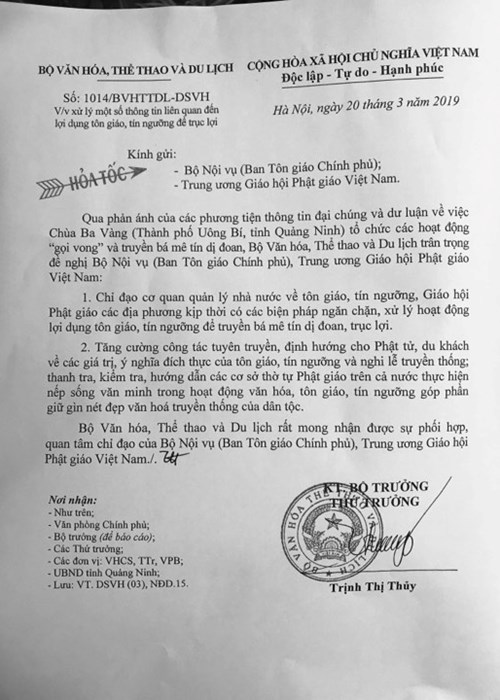 BỘ VĂN HÓA, THỂ THAO VÀ DU LỊCH
CỘNG HÒA XÃ HỘI CHỦ NGHĨA VIỆT NAM
Độc lập - Tự do - Hạnh phúc
Số: 1014/BVHTTDL-DSVH
V/v xử lý một số thông tin liên quan đến
lợi dụng tôn giáo, tín ngưỡng để trục lợi
Hà Nội, ngày 20 tháng 3 năm 2019
HỎA TỐC
Kính gửi:
- Bộ Nội vụ (Ban Tôn giáo Chính phủ);
- Trung ương Giáo hội Phật giáo Việt Nam.
Qua phản ánh của các phương tiện thông tin đại chúng và dư luận về việc
Chùa Ba Vàng (Thành phố Uông Bí, tỉnh Quảng Ninh) tổ chức các hoạt động
“gọi vong” và truyền bá mê tín dị đoan, Bộ Văn hóa, Thể thao và Du lịch trân trọng
đề nghị Bộ Nội vụ (Ban Tôn giáo Chính phủ), Trung ương Giáo hội Phật giáo
Việt Nam:
1. Chỉ đạo cơ quan quản lý nhà nước về tôn giáo, tín ngưỡng, Giáo hội
Phật giáo các địa phương kịp thời có các biện pháp ngăn chặn, xử lý hoạt động
lợi dụng tôn giáo, tín ngưỡng để truyền bá mê tín dị đoan, trục lợi.
2. Tăng cường công tác tuyên truyền, định hướng cho Phật tử, du khách
về các giá trị, ý nghĩa đích thực của tôn giáo, tín ngưỡng và nghi lễ truyền thống;
thanh tra, kiểm tra, hướng dẫn các cơ sở thờ tự Phật giáo trên cả nước thực hiện
nếp sống văn minh trong hoạt động văn hóa, tôn giáo, tín ngưỡng góp phần
giữ gìn nét đẹp văn hoá truyền thống của dân tộc.
Bộ Văn hóa, Thể thao và Du lịch rất mong nhận được sự phối hợp,
quan tâm chỉ đạo của Bộ Nội vụ (Ban Tôn giáo Chính phủ), Trung ương Giáo hội
Phật giáo Việt Nam./.
Nơi nhận:
- Như trên;
- Văn phòng Chính phủ;
- Bộ trưởng (để báo cáo);
- Các Thứ trưởng;
- Các đơn vị: VHCS, TTr, VPB;
- UBND tỉnh Quảng Ninh;
- Lưu: VT. DSVH (03), NĐD.15.
KT. BỘ TRƯỞNG
THỨ TRƯỞNG
BỘ VĂN HÓA THỂ THAO VÀ DU LỊCH
Trịnh Thị Thủy